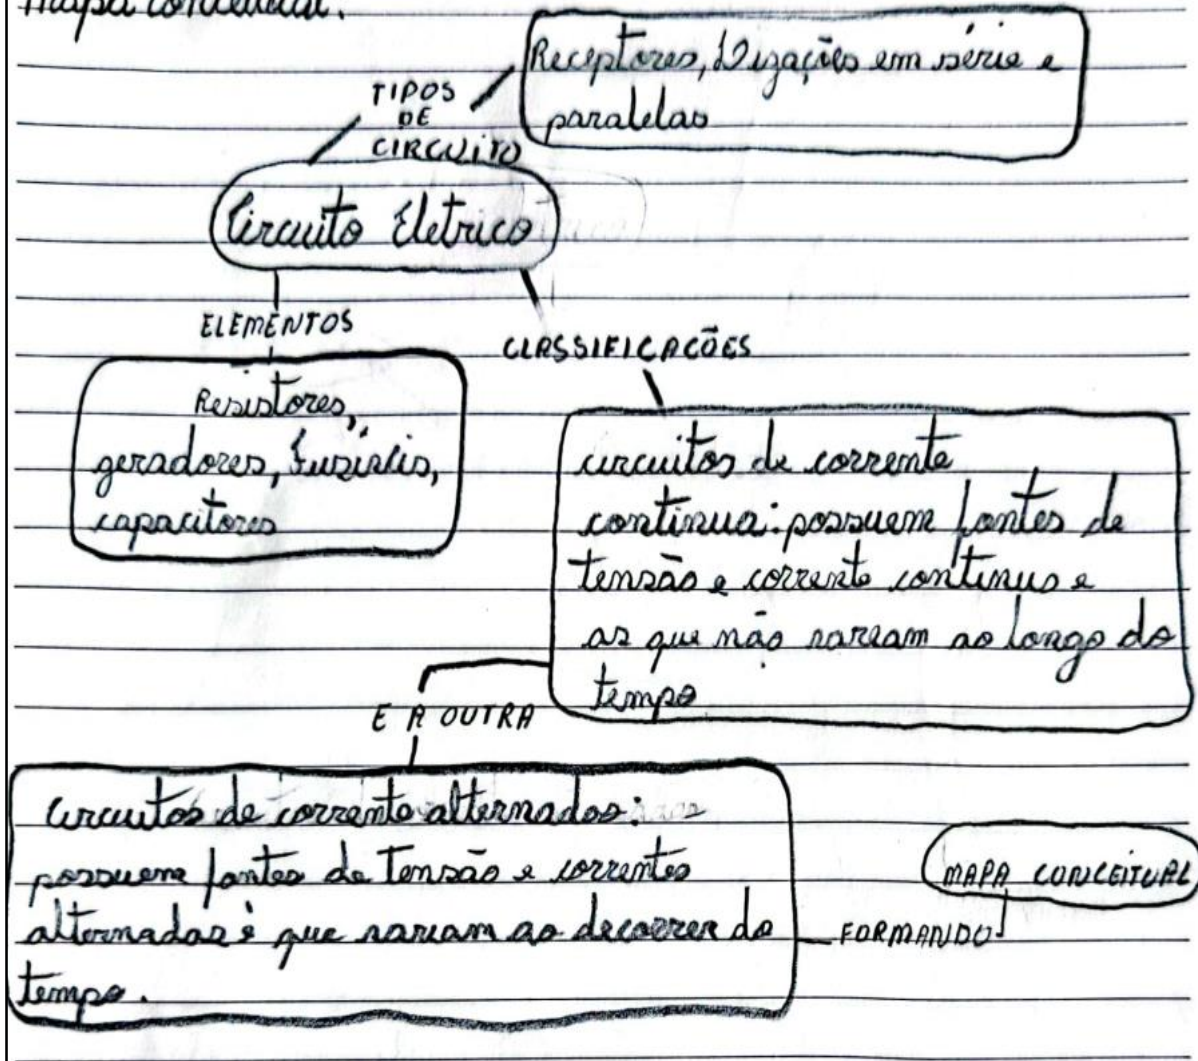 mapa conceitual.
Receptores, Ligações em série e
paralelas
TIPOS
DE
CIRCUITO
Circuito Eletrico
ELEMENTOS
CLASSIFICAÇÕES
Resistores,
geradores, fusíveis,
capacitores
circuitos de corrente
continua: possuem fontes de
tensão e corrente continua e
as que não variam ao longo do
tempo
E A OUTRA
circuitos de corrente alternadas:
possuem fontes de tensão e correntes
alternadas e que variam ao decorrer do
tempo.
FORMANDO
MAPA CONCEITUAL